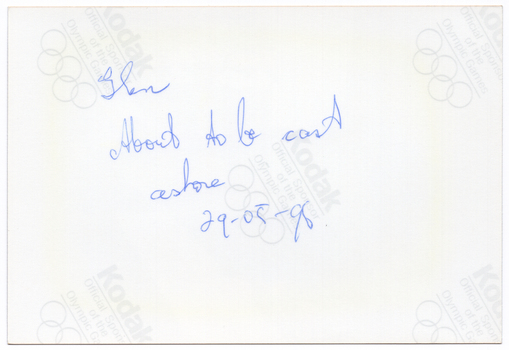 Glen
About to be cast
ashore
29-05-96
Kodak
Official Sponsor
of the
Olympic Games
Kodak
Official Sponsor
of the
Olympic Games
Kodak
Official Sponsor
of the
Olympic Games
Kodak
Official Sponsor
of the
Olympic Games
Kodak
Official Sponsor
of the
Olympic Games